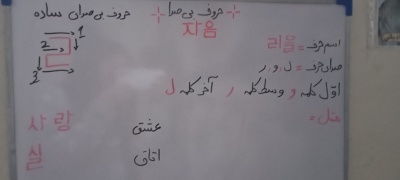 حروف بی صدا
자음
حروف بی صدای ساده
1
2
3
اسم حرف = 리을
صدای حرف = ل و ر
اول کلمه و وسط کلمه ر آخر کلمه ل
مثل:
사랑 عشق
실 اتاق